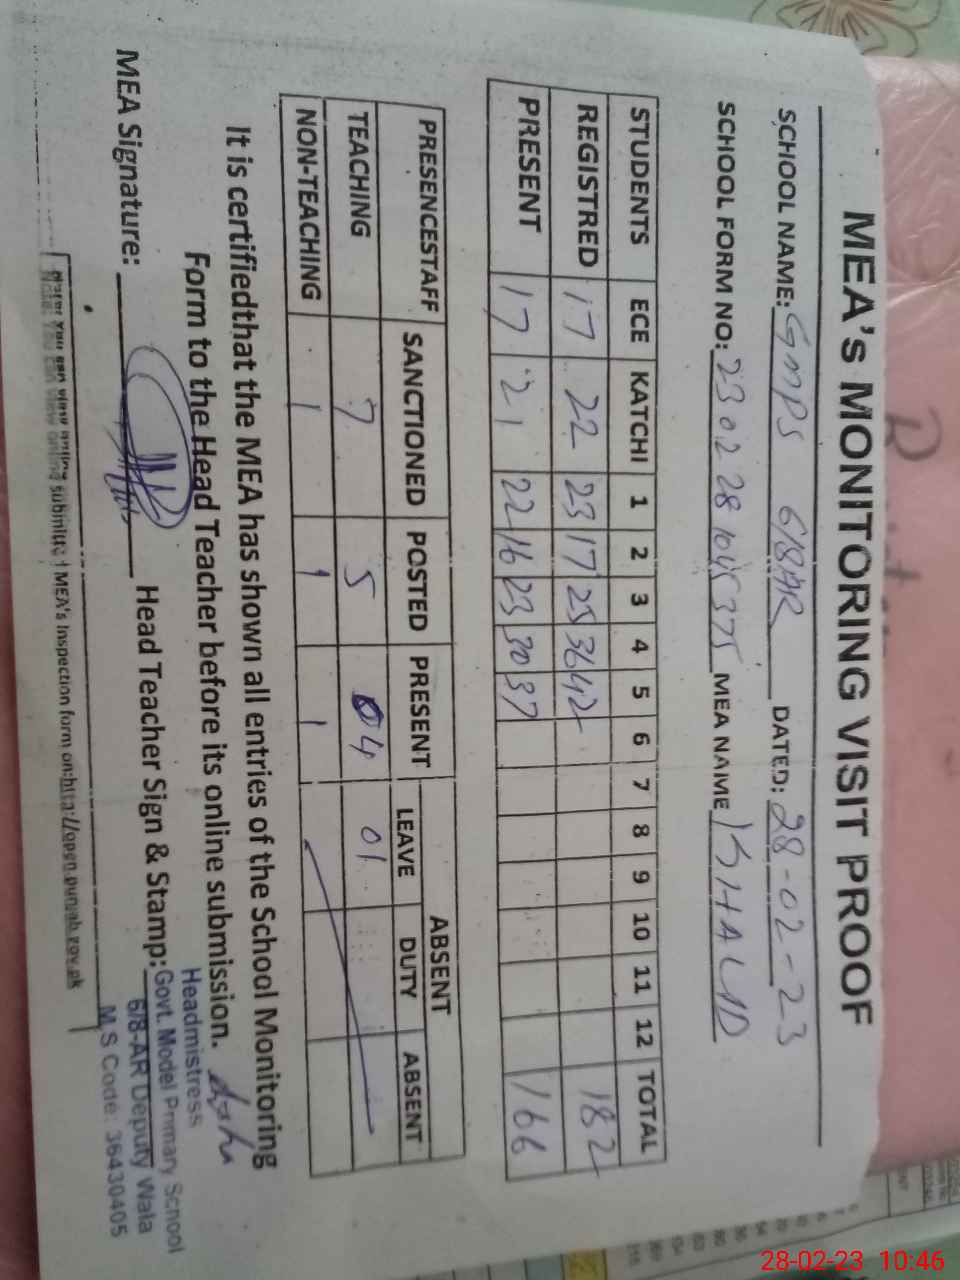 MEA's MONITORING VISIT PROOF
SCHOOL NAME: GMPS 6/8AR DATED: 28-02-23
SCHOOL FORM NO: 2302281045375 MEA NAME KHALID
STUDENTS ECE KATCHI 1 2 3 4 5 6 7 8 9 10 11 12 TOTAL
REGISTRED 17 22 23 17 25 36 42 182
PRESENT 17 21 22 16 23 30 37 166
PRESENCESTAFF SANCTIONED POSTED PRESENT ABSENT
LEAVE DUTY ABSENT
TEACHING 7 5 04 01
NON-TEACHING 1 1 1
It is certifiedthat the MEA has shown all entries of the School Monitoring
Form to the Head Teacher before its online submission.
MEA Signature: Head Teacher Sign & Stamp:
Headmistress
Govt. Model Primary School
6/8-AR Deputy Wala
M S Code: 36430405
Note: You can view online submitted MEA's Inspection form on:http://open.punjab.gov.pk
28-02-23 10:46